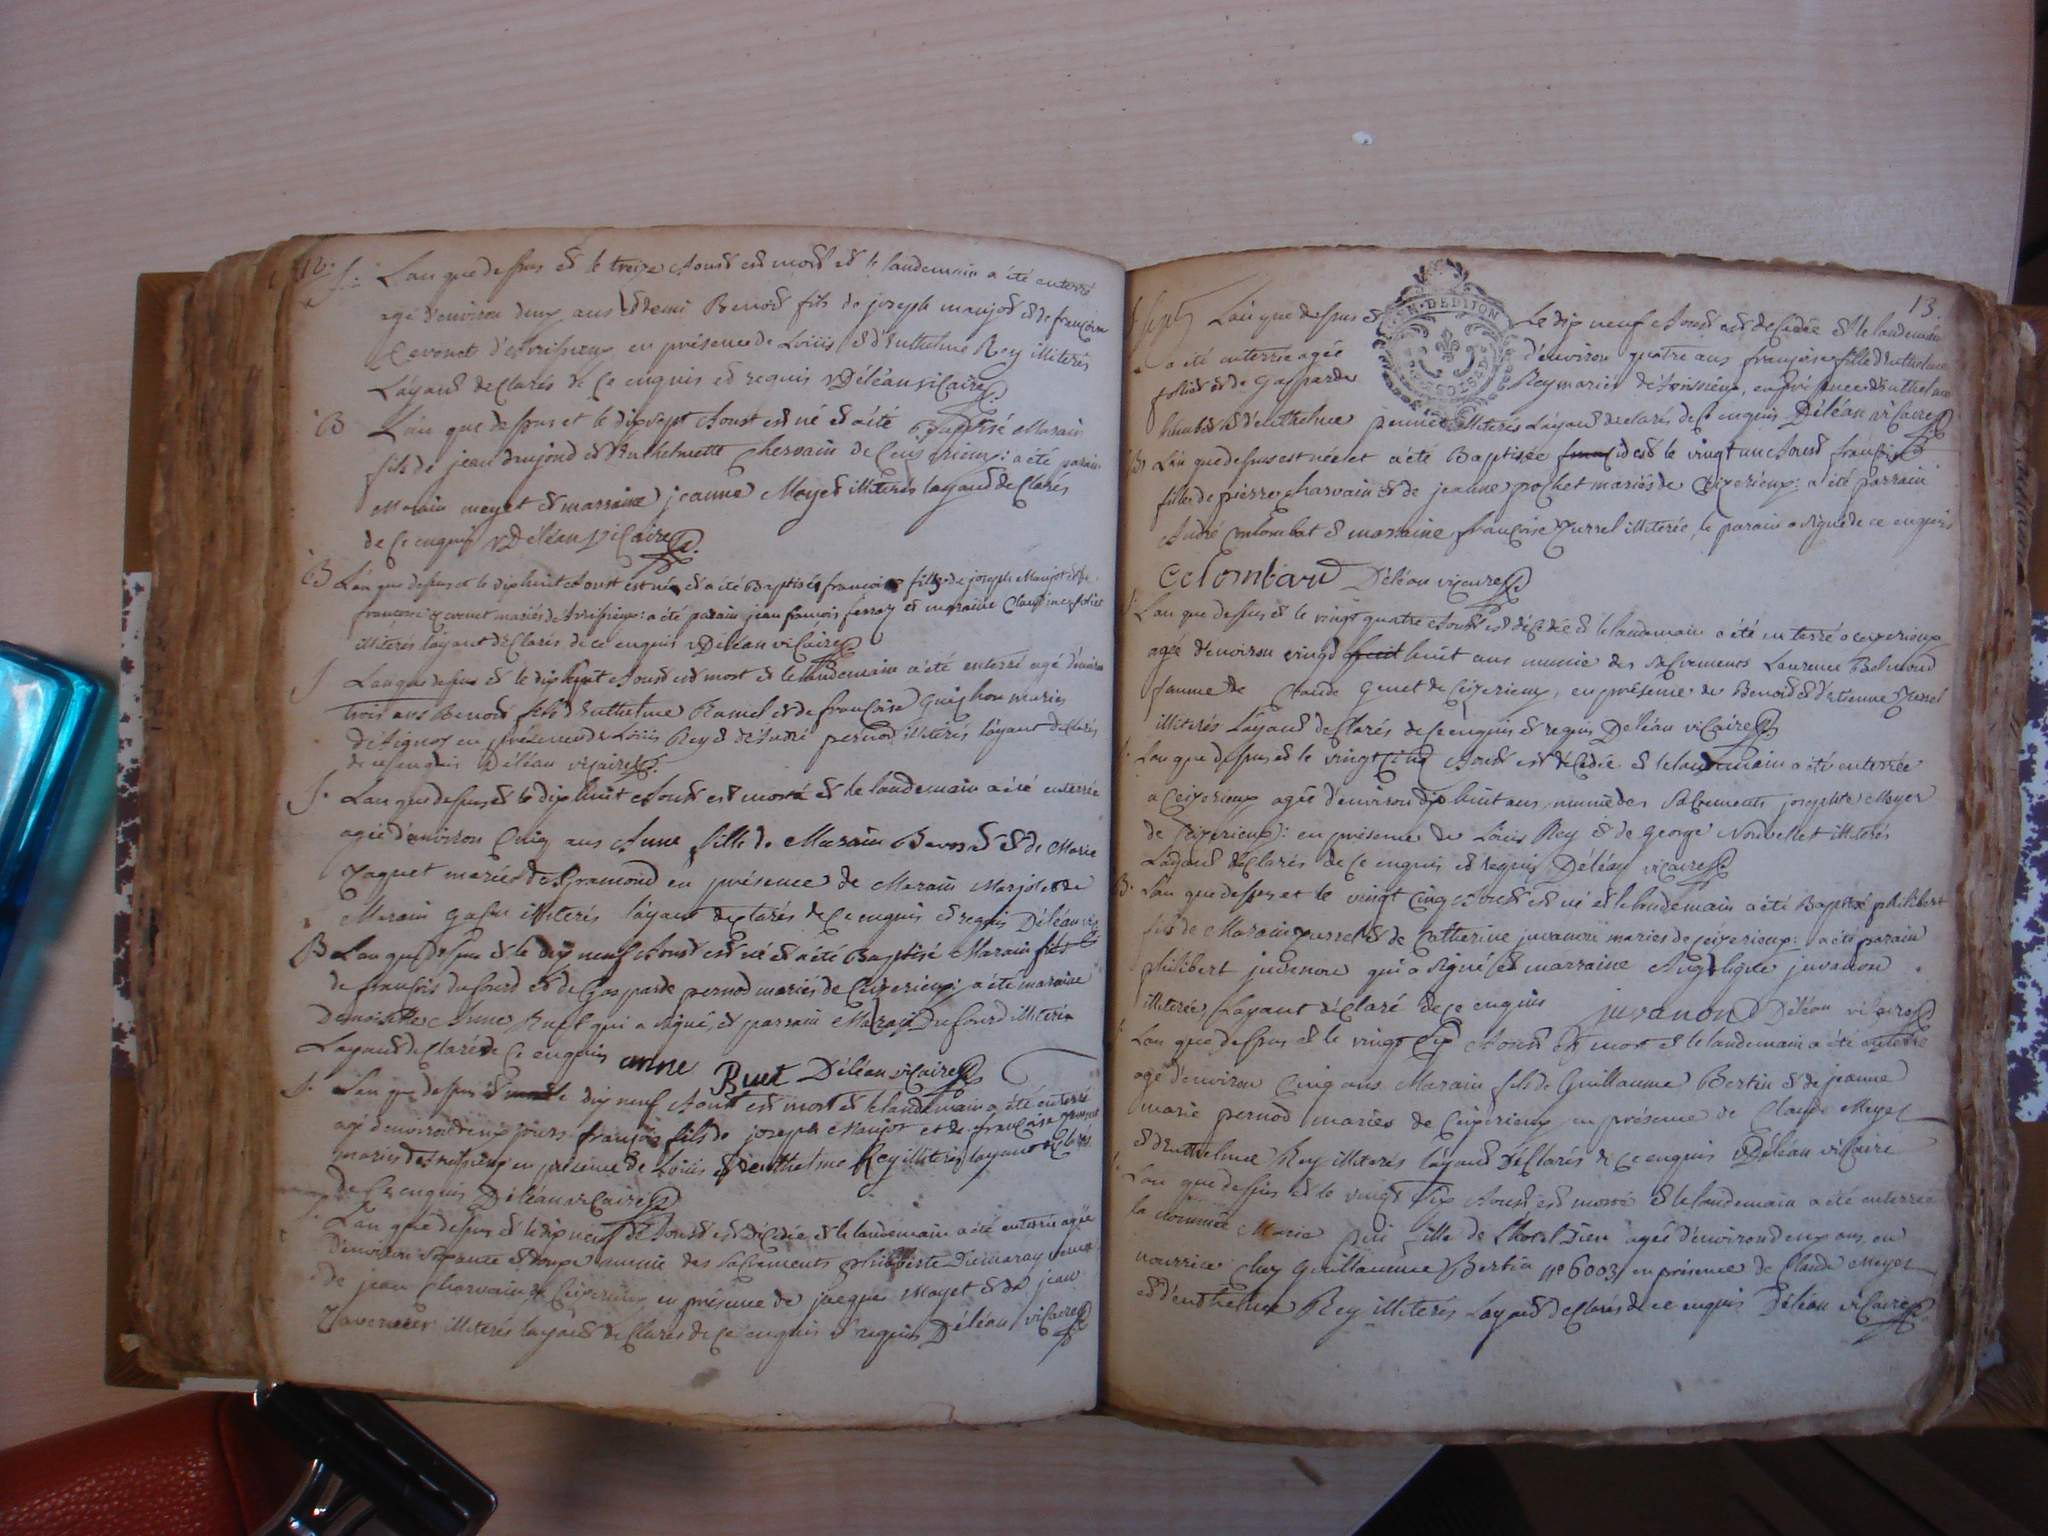 12.
S. L'an que dessus et le treize Aoust est mort et le landemain a été enterré
agé d'environ deux ans et demi Benoit fils de joseph maujot et de françoise
en présence de Loüis et d'Anthelme Rey illiterés
Layant declarés de Ce enquis et requis Déléan viCaire
B L'an que dessus et le dixsept Aoust est né et a été Baptisé Marain
fils de jean et Anthelmette Chervain de Ceyzerieux: a été parain
Marain meyet et marraine jeanne Meyet illiterés layant deClarés
de Ce enquis Déléan viCaire
B L'an que dessus et le dixhuit Aoust est née et a été Baptisée françoise fille de joseph Maujot et de
françoise mariés : a été parain jean françois ferroz et maraine Claudine
illiterés layant deClarés de ce enquis Déléan viCaire
S L'an que dessus et le dix Aoust est mort et le landemain a été enterré agé d'environ
trois ans Benoit fils d'Anthelme Ramel et de françoise mariés
en présence de Loüis Rey et d'André pernod illiterés layant deClarés
de ce enquis Déléan viCaire
S. L'an que dessus et le dixhuit Aoust est morte et le landemain a été enterrée
agée d'environ Cinq ans Anne fille de Marain et de Marie
mariés de Gramond en présence de Marain Marjolet de
Marain illiterés layant declarés de Ce enquis et requis Déléan vic
B L'an que dessus et le dix neuf Aoust est né et a été Baptisé Marain fils
de françois dufourd et de Gasparde pernod mariés de Ceyzerieux: a été maraine
Demoiselle Anne Buet qui a signé, et parrain Marain Dufourd illiteré
Layant deClaré de Ce enquis anne Buet Déléan viCaire
S. L'an que dessus et le dix neuf Aoust est mort et le landemain a été enterré
agé d'environ deux jours françois fils de joseph Maujot et de françoise
mariés en présence de Loüis et d'enthelme Rey illiterés layant deClarés
de Ce enquis Déléan viCaire
L'an que dessus et le dix neuf Aoust est déCédée et le landemain a été enterrée agée
D'environ soixante et douze munie des saCrements philiberte Dumaray veuve
de jean Charvain de Ceyzerieux en présence de jacque Meyet et de jean
Tavernier illiterés layant deClarés de Ce enquis et requis Déléan viCaire
13.
L'an que dessus et Le dix neuf Aoust est deCedée et le landemain
a été enterrée agée d'environ quatre ans françoise fille d'Anthelme
et de Gasparde Rey mariés en présence d'Anthelme
et d'enthelme illiterés Layant declarés de Ce enquis Déléan viCaire
GEN. DE DIJON
B L'an que dessus est née et a été Baptisée le vingt un Aoust françoise
fille de pierre Charvain et de jeanne pochet mariés de Ceyzerieux: a été parrain
André Colombat et marraine françoise Jurrel illiterée, le parain a signé de ce enquis
Colombard Déléan viCaire
S. L'an que dessus et le vingt quatre Aoust est déCédée et le landemain a été enterrée a ceyzerieux
agée d'environ vingt huit ans munie des saCrements Laurence
famme de Claude Genet de Ceyzerieux, en présence de Benoit et d'Etienne Jurrel
illiterés Layant deClarés de Ce enquis et requis Déléan viCaire
S. L'an que dessus et le vingt Cinq Aoust est déCédée et le landemain a été enterrée
a Ceyzerieux agée d'environ dix huit ans munie des saCrements josephte Meyer
de Ceyzerieux: en présence de Loüis Rey et de George Nouvellet illiterés
Layant deClarés de Ce enquis et requis Déléan viCaire
B. L'an que dessus et le vingt Cinq Aoust est né et le landemain a été Baptisé philibert
fils de Marain Jurrel et de Catherine juvanon mariés de Ceyzerieux: a été parain
philibert juvanon qui a signé et marraine Angelique juvanon
illiterée Layant déClaré de ce enquis juvanon Déléan viCaire
S. L'an que dessus et le vingt six Aoust est mort et le landemain a été enterré
agé d'environ Cinq ans Marain fils de Guillaume Bertin et de jeanne
marie pernod mariés de Ceyzerieux en présence de Claude Meyet
et d'Anthelme Rey illiterés layant DéClarés de Ce enquis Déléan viCaire
L'an que dessus et le vingt six Aoust est morte et le landemain a été enterrée
la nommée Marie fille de L'hotel Dieu agée d'environ deux ans, en
nourrice Chez Guillaume Bertin n° 6003 en présence de Claude Meyet
et d'enthelme Rey illiterés Layant deClarés de ce enquis Déléan viCaire